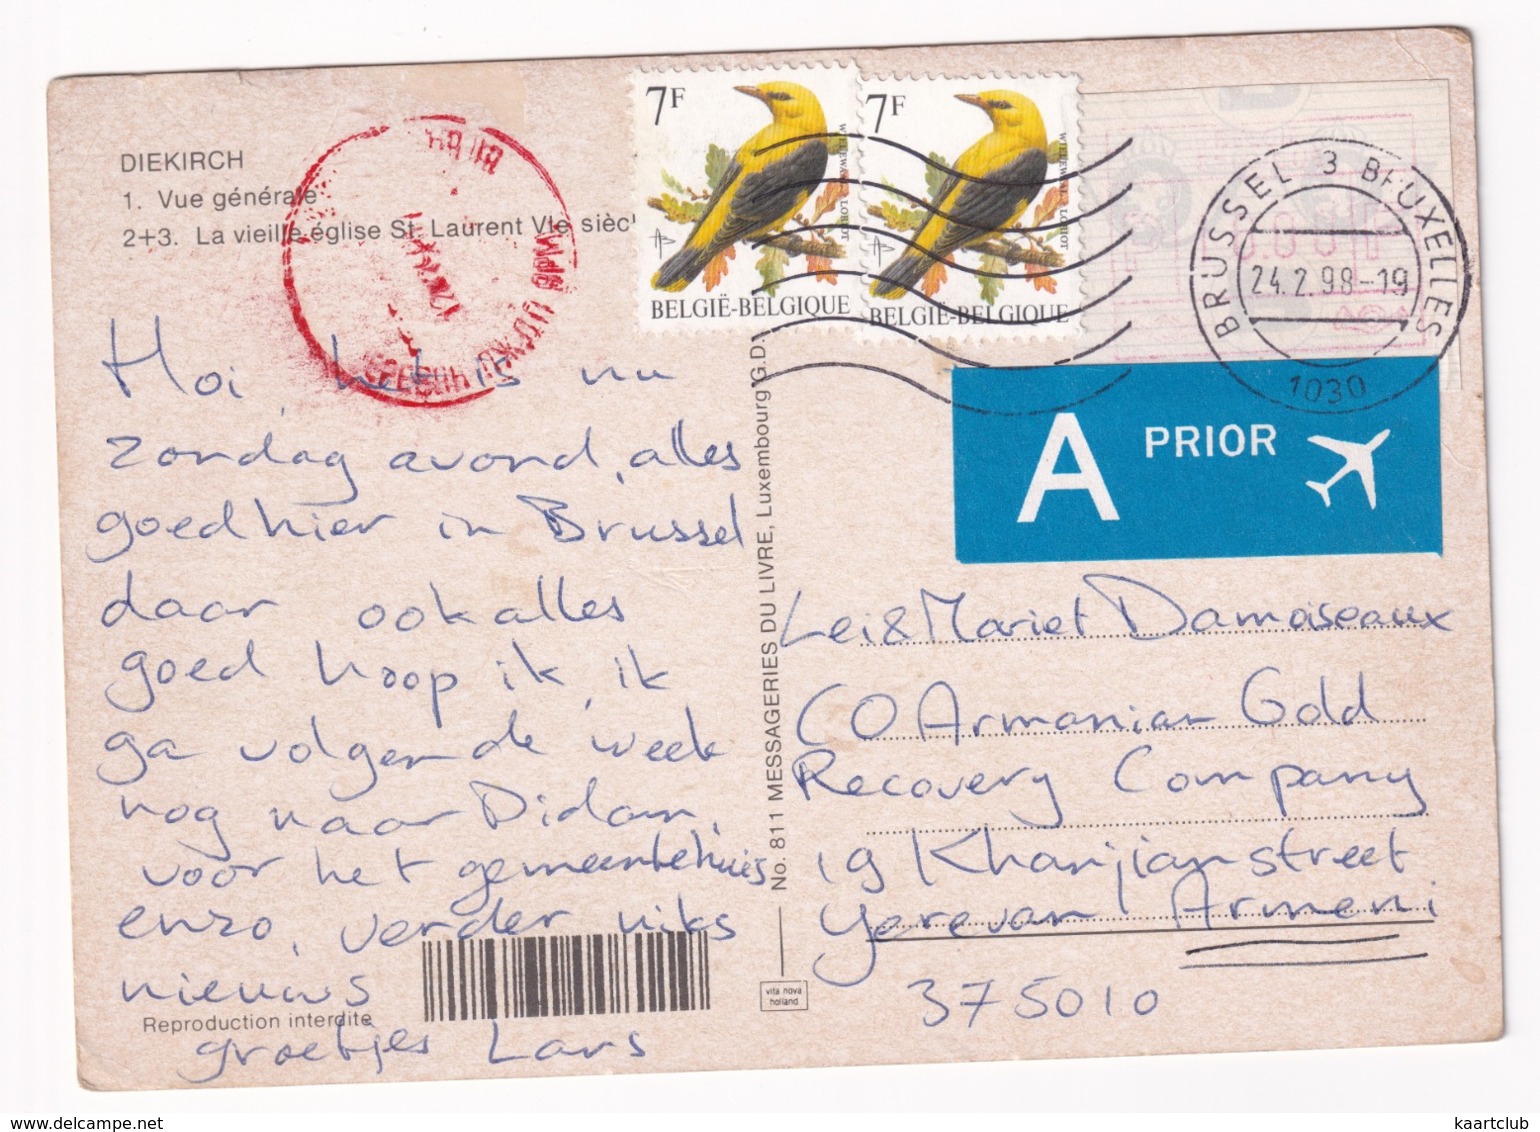 DIEKIRCH
1. Vue générale
2+3. La vieille église St. Laurent VIe siècl
7F
WIELEWAAL LORIOT
BELGIË-BELGIQUE
7F
WIELEWAAL LORIOT
BELGIË-BELGIQUE
BRUSSEL 3 BRUXELLES
24.2.98-19
1030
A PRIOR
Hoi, het is nu
zondag avond, alles
goed hier in Brussel
daar ook alles
goed hoop ik, ik
ga volgende week
nog naar Didam,
voor het gemeentehuis
enzo, verder niks
nieuws
Reproduction interdite
groetjes Lars
No. 811 MESSAGERIES DU LIVRE, Luxembourg G.D.
vita nova
holland
Lei & Mariet Damoiseaux
CO Armenian Gold
Recovery Company
19 Khanjian street
Yerevan Armeni
375010
www.delcampe.net
kaartclub